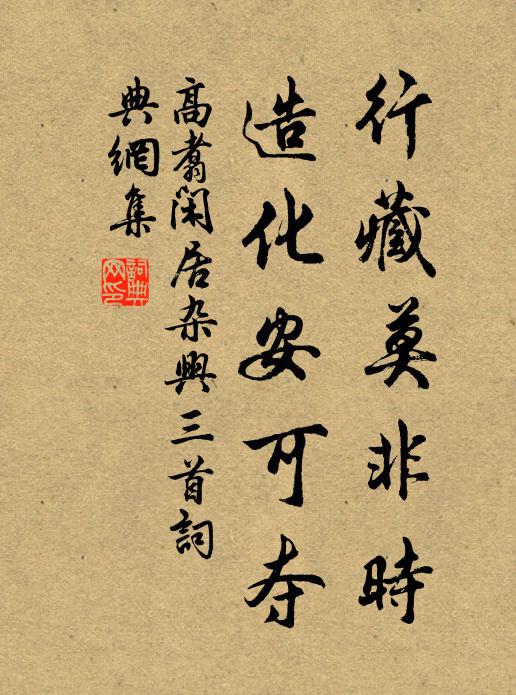 行藏莫非時
造化安可夺
高翥閑居杂興三首詞
典網集
詞典
网印